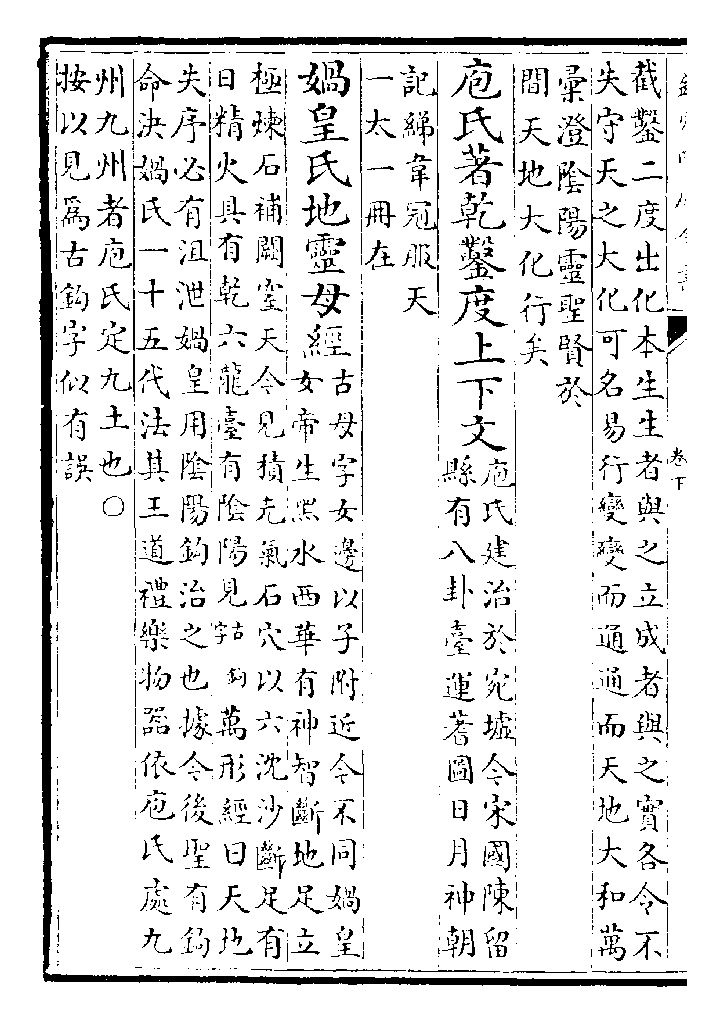 卷下
截鑿二度出化本生生者與之立成者與之實各令不
失守天之大化可名易行變變而通通而天地大和萬
彚澄陰陽靈聖賢於
間天地大化行矣
庖氏著乾鑿度上下文
庖氏建治於宛墟今宋國陳留
縣有八卦臺運蓍圖日月神朝
記綈韋冠服天
一太一冊在
媧皇氏地靈母經
古母字女邊以子附近今不同媧皇
女帝生黑水西華有神智斷地足立
極煉石補闕窒天今見積旡氣石穴以六沈沙斷足有
日精火具有乾六龍臺有陰陽見古鈎字萬形經曰天地
失序必有沮泄媧皇用陰陽鈎治之也據今後聖有鈎
命決媧氏一十五代法其王道禮樂物器依庖氏處九
州九州者庖氏定九土也○
按以見爲古鈎字似有誤